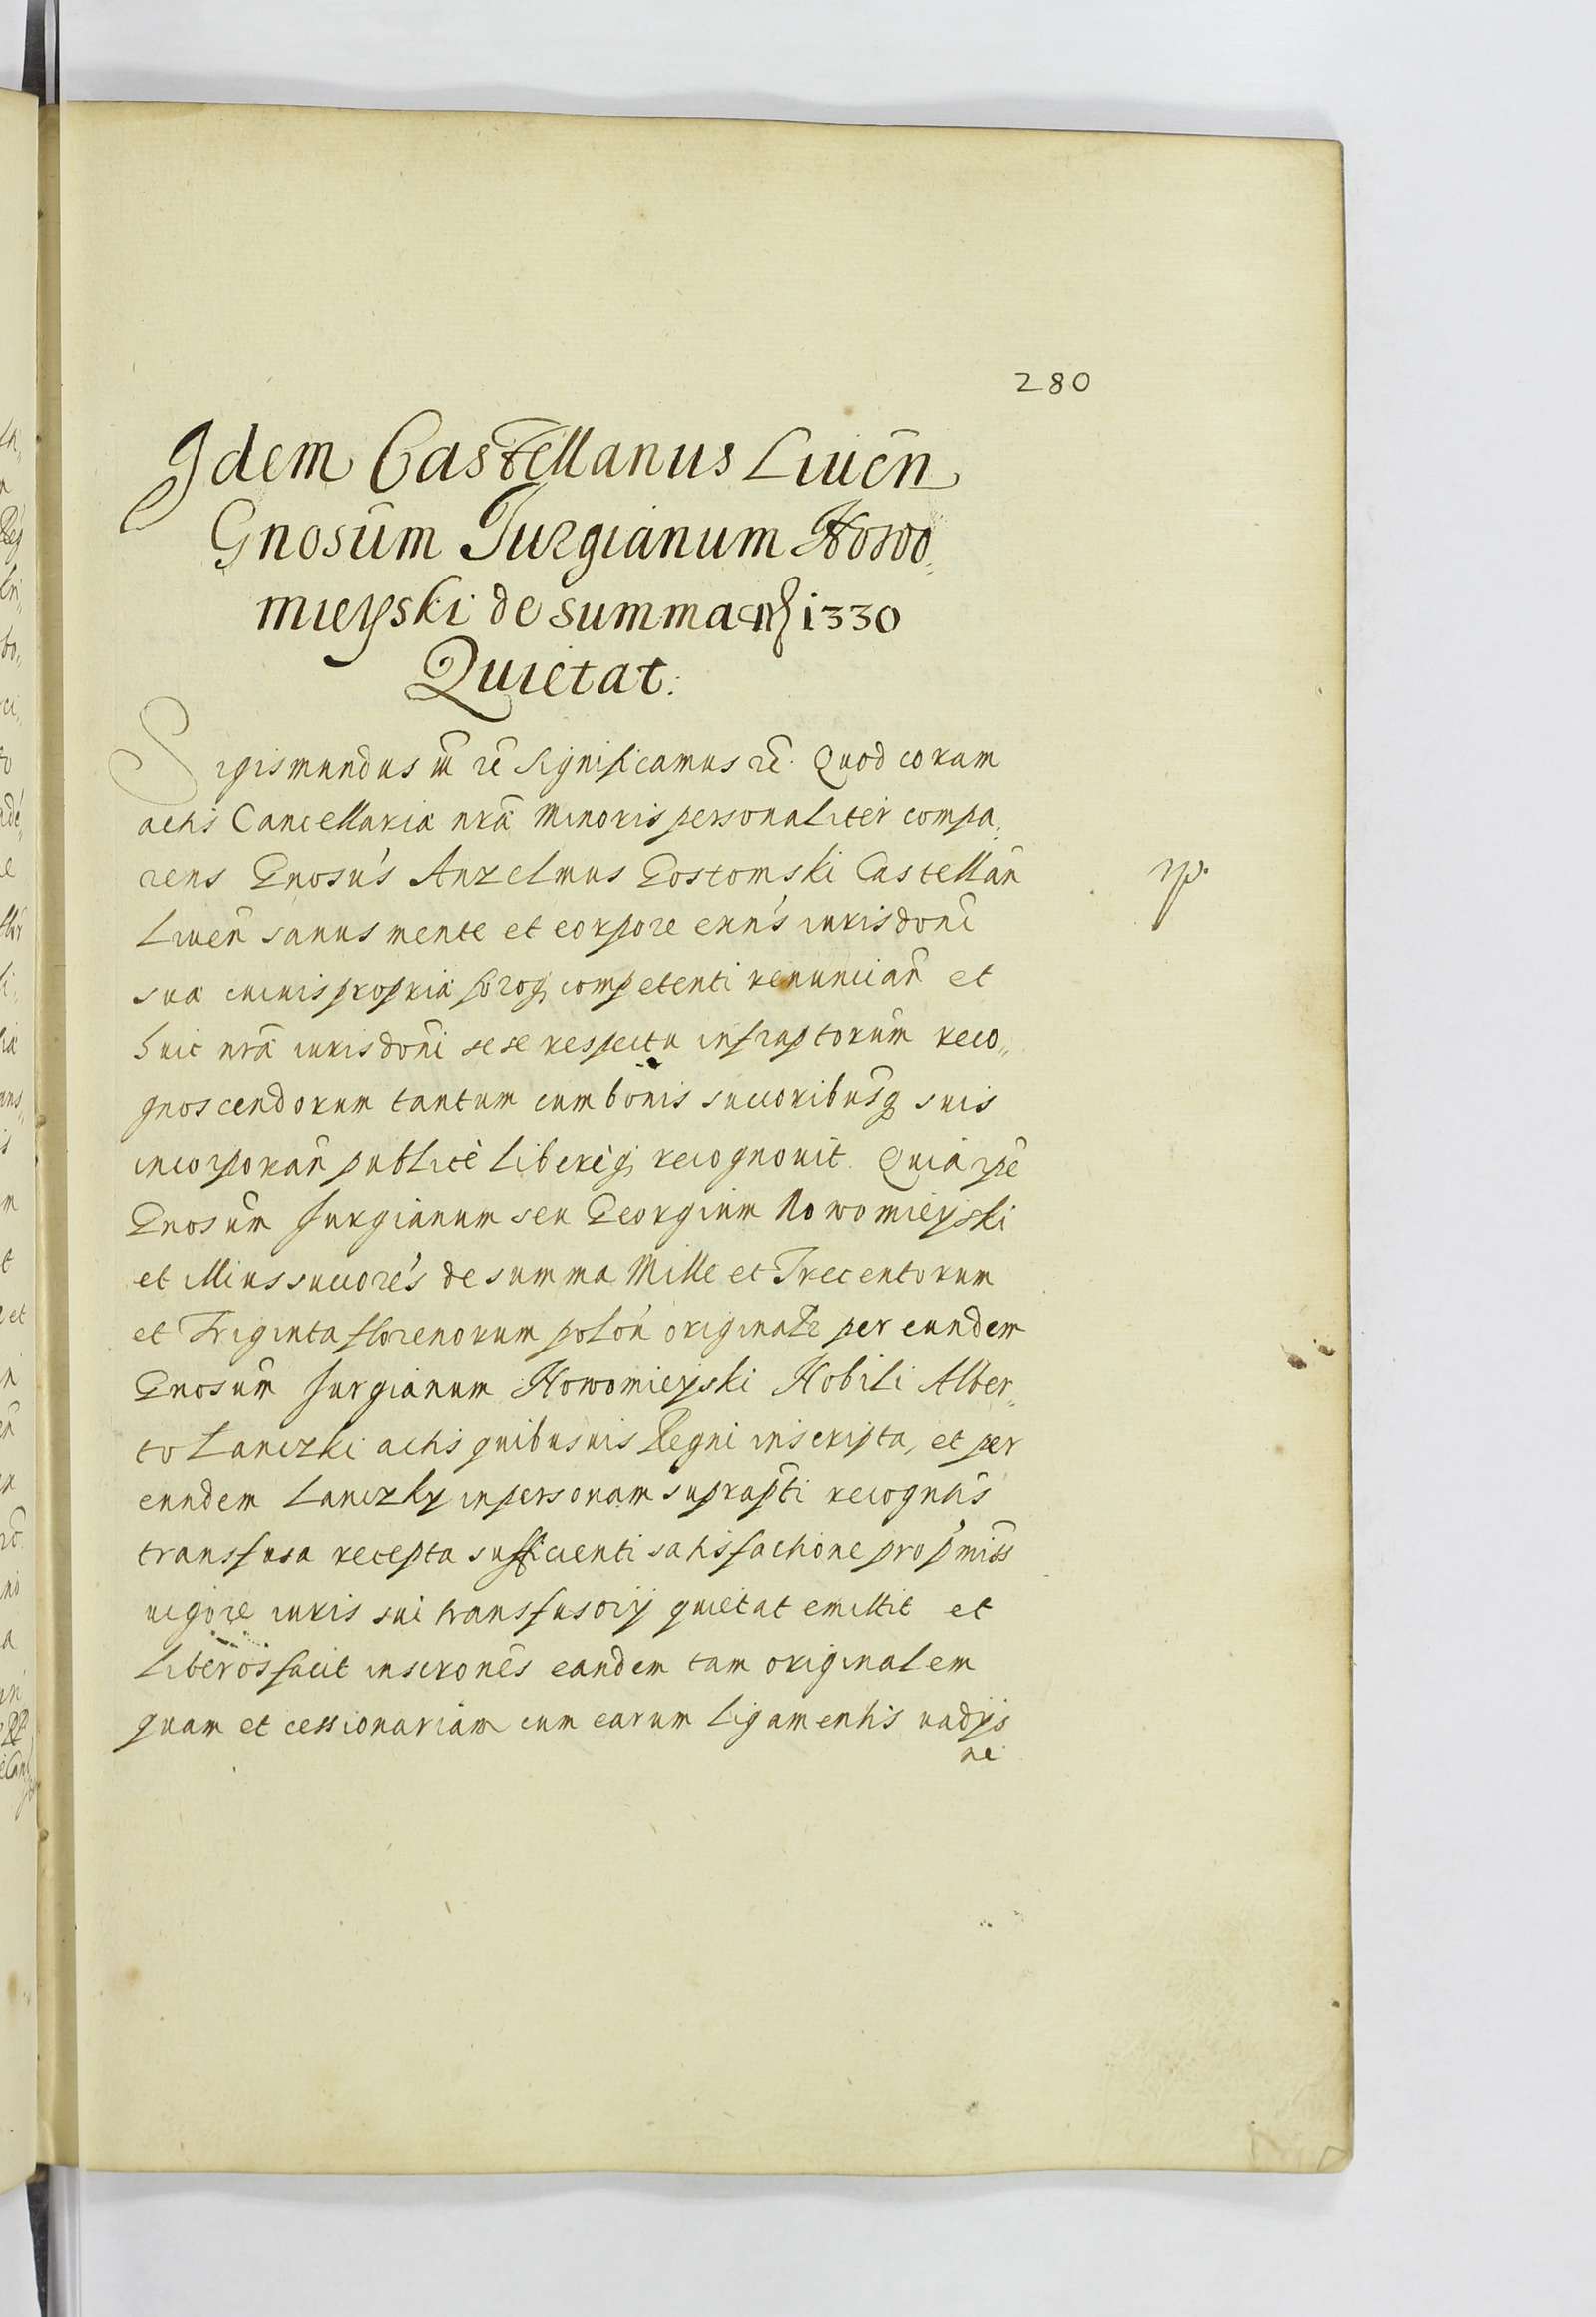 280
Idem Castellanus Liuen̄
Gnosum̄ Jurgianum Nowo„
mieyski de summa fl 1330
Quietat:
Sigismundus m̄ rē Significamus rē. Quod coram
actis Cancellariæ nræ̃ Minoris personaliter compa„
rens Gnosus Anzelmus Gostomski Castellan̄
Liuen̄ sanus mente et corpore enn's iurisdoni
sua cuiuis propria foroq; competenti renuncian̄ et
huic nrã iurisdoni sese respectu infraptorum̄ reco„
gnoscendorum tantum cum bonis succoribusq suis
incorporan̄ publicè liberèq; recognouit. Quia ipē
Gnosum̄ Jurgianum seu Georgium Nowomieyski
et illius succores de summa Mille et Trecentorum
et Triginta florenorum polon̄ originalr per eundem
Gnosum̄ Jurgianum Nowomieyski Nobili Alber„
to Lanczki actis quibusuis Regni inscripta, et per
eundem Lanczky in personam suprapti recogn̄tis
transfusa recepta sufficienti satisfactione pro pmiss
uigore iuris sui transfusorij quietat emittit et
Liberos facit inscrones eandem tam originalem
quam et cessionariam cum earum ligamentis uadijs
ne